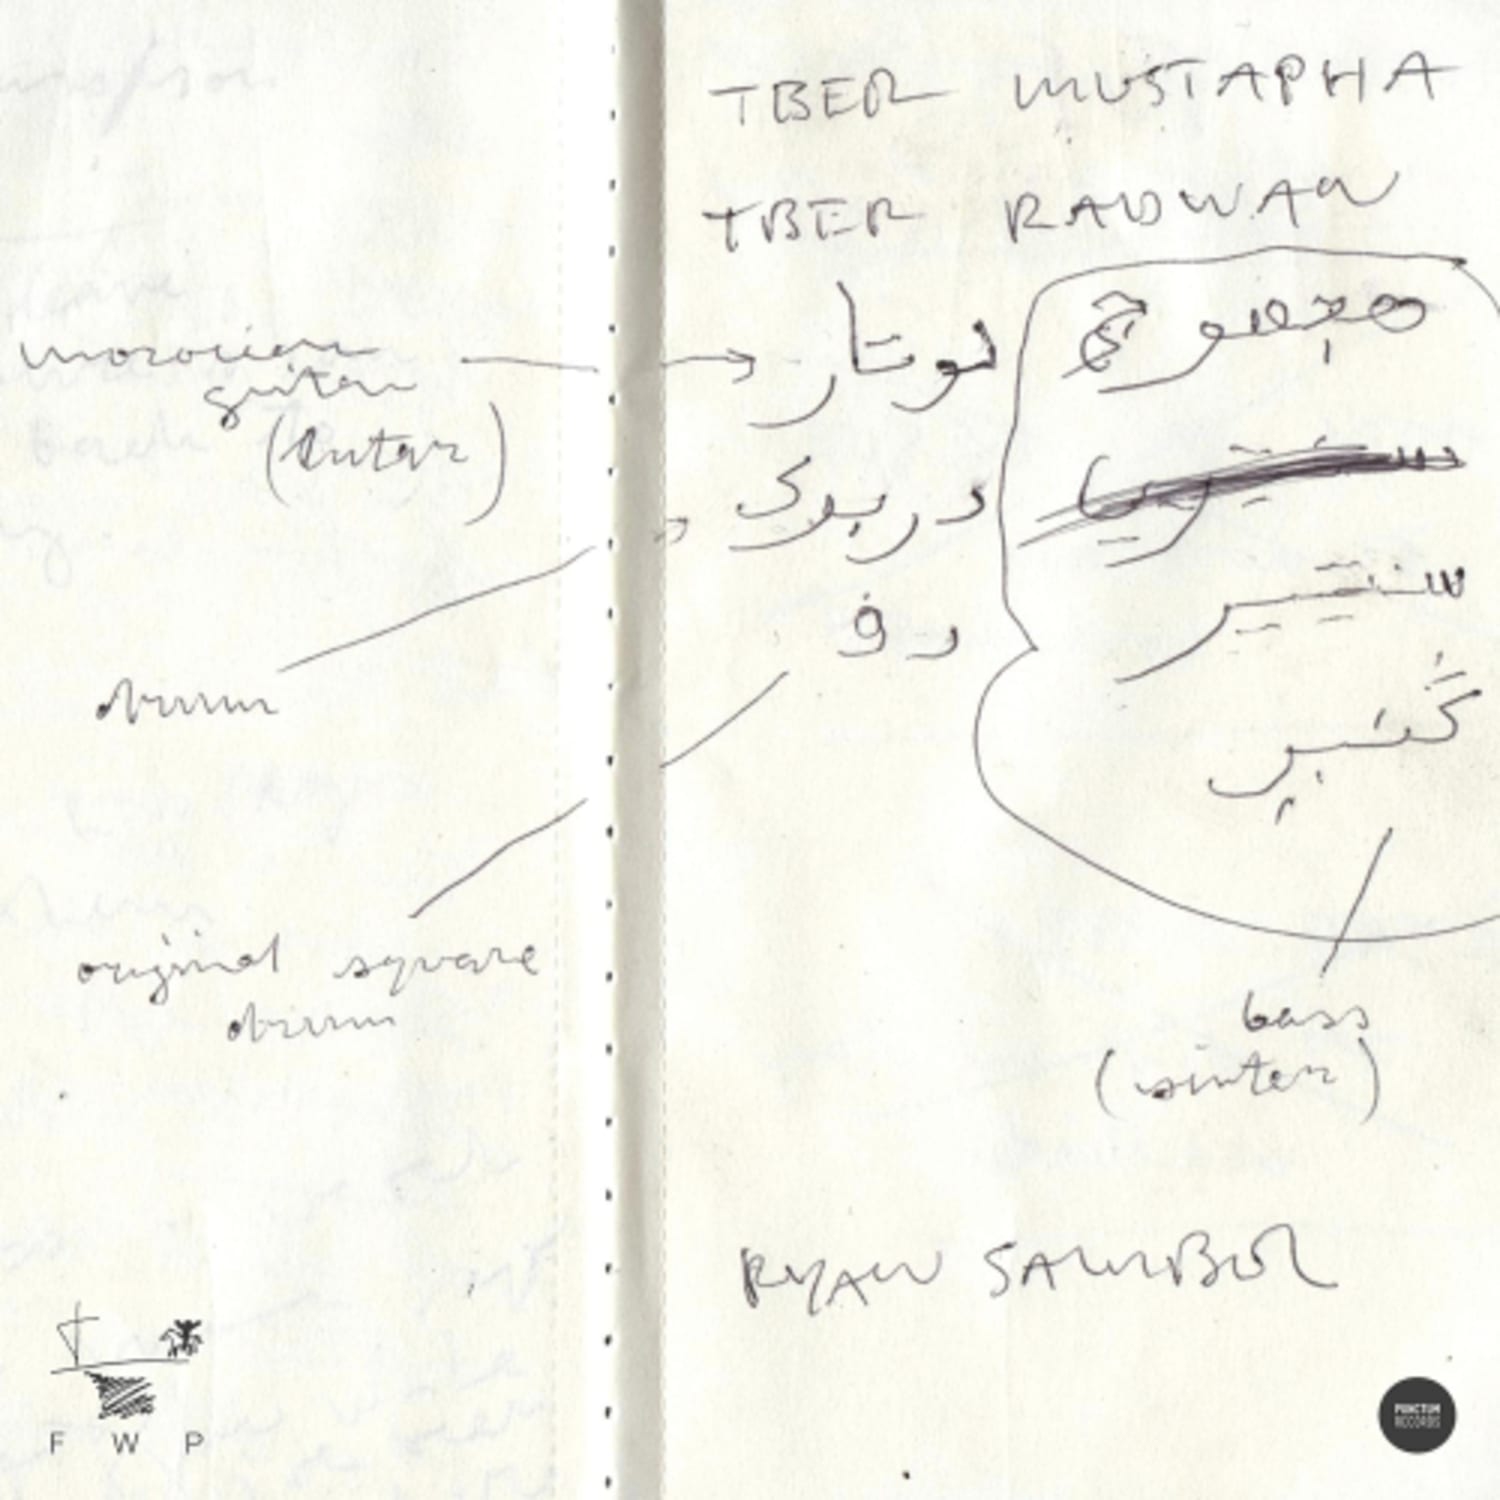 TBER MUSTAPHA
TBER RADWAN
morocian
guitar
(lutar)
لوتار
دربوك
دف
drum
original square
drum
سنتير
گنبر
bass
(sinter)
RYAN
F W P
PUNCTUM
RECORDS